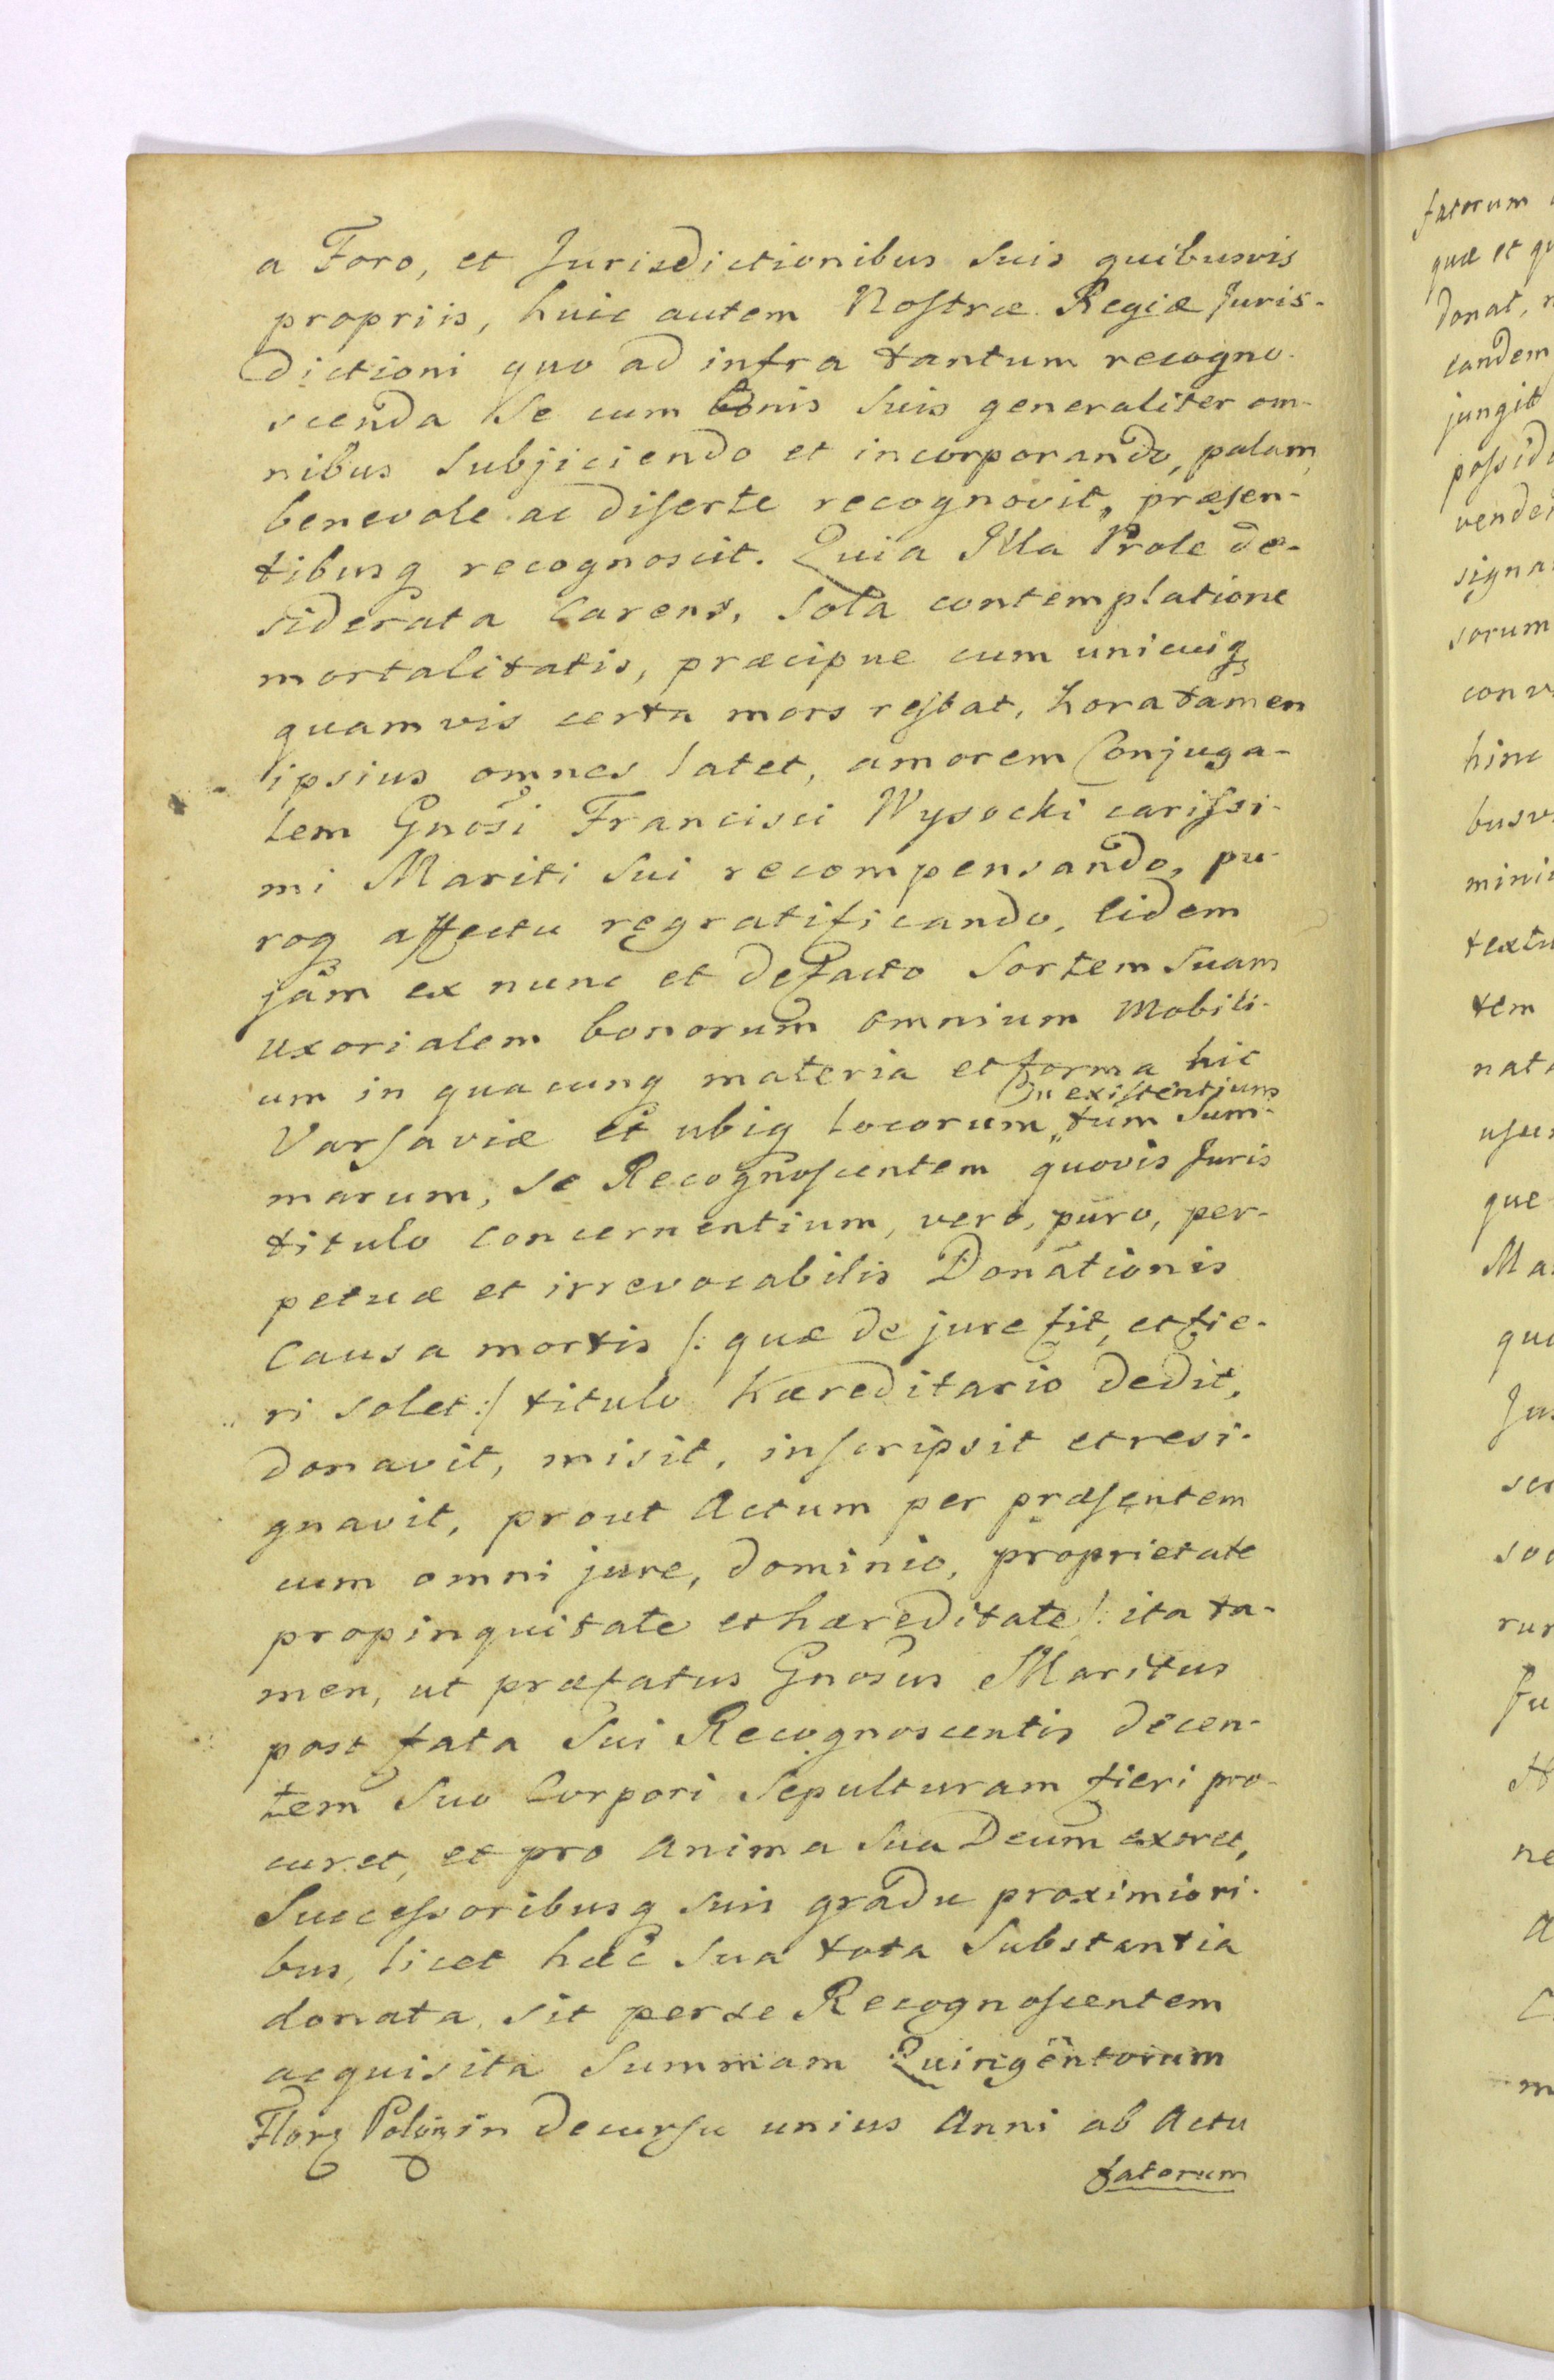 a Foro, et Jurisdictionibus Suis quibusvis
propriis, huic autem Nostræ Regiæ Juris-
dictioni quo ad infra tantum recogno-
scenda Se cum bonis Suis generaliter om-
nibus Subjiciendo et incorporando, palam,
benevole ac diserte recognovit, præsen-
tibusq recognoscit. Quia Illa Prole de-
siderata Carens, Sola contemplatione
mortalitatis, præcipue cum unicuiq
quamvis certa mors restat, hora tamen
ipsius omnes latet, amorem Conjuga-
lem Gnosi Francisci Wysocki carissi-
mi Mariti Sui recompensando, pu-
roq affectu regratificando, Eidem
jam ex nunc et defacto Sortem Suam
uxorialem bonorum omnium Mobili-
um in quacunq materia et forma hic
in existentium
Varsaviæ et ubiq locorum, tum Sum-
marum, Se Recognoscentem quovis Juris
titulo Concernentium, vero, puro, per-
petuæ et irrevocabilis Donationis
Causa mortis /: quæ de jure fit, et fie-
ri solet :/ titulo Hæreditario dedit,
donavit, misit, inscripsit et resi-
gnavit, prout Actum per præsentem
cum omni jure, dominio, proprietate
propinquitate et hæreditate /: ita ta-
men, ut præfatus Gnosus Maritus
post fata Sui Recognoscentis decen-
tem Suo Corpori Sepulturam fieri pro-
curet, et pro Anima Sua Deum exoret,
Successoribusq suis gradu proximiori-
bus, licet hæc Sua tota Substantia
donata, sit per se Recognoscentem
acquisita Summam Quingentorum
Flor Polon in decursu unius Anni ab Actu
fatorum
fatorum
quæ et qu
donat,
eandem
jungit
possid
vende
signa
sorum
conv
hinc
busv
mini
textu
tem
nat
usu
que
Ma
qu
Ju
sc
so
rur
Ju
ne